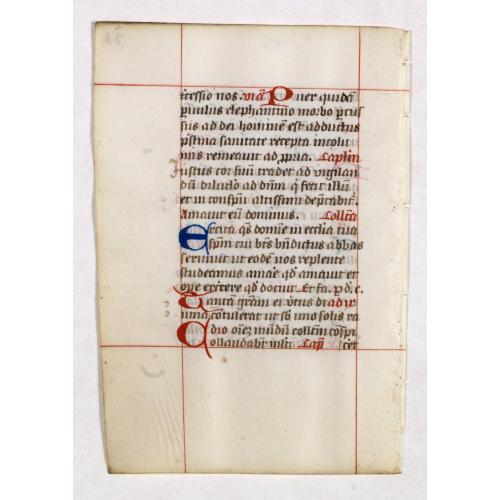 tcessio nos. vīa Puer quidā
p̄uulus elephantino morbo p̄cus
sus ad dei hominē est adductus
p̄stina sanitate recepta incolu
mis remeauit ad p̄pria. Caplm
Iustus cor suū tradet ad vigilan
dū diluclo ad dūm q̄ fecit illū
et in conspū altissimi dep̄cabit̄.
Amauit eū dominus. Collcā
Excita qs̄ domīe in ecclia tua
sp̄m cui bt̄s bn̄dictus abbas
seruiuit ut eodē nos replente
studeamus amāe qd̄ amauit et
ope exercere qd̄ docuit. Et fa. p d. c.
Tantā gr̄am et v̄tus diuir
nima cōtulerat ut sb̄ uno solis ra
dio oēz mūdū collcm cōspi
Collaudabt̄ mlti Cap̄ ceret